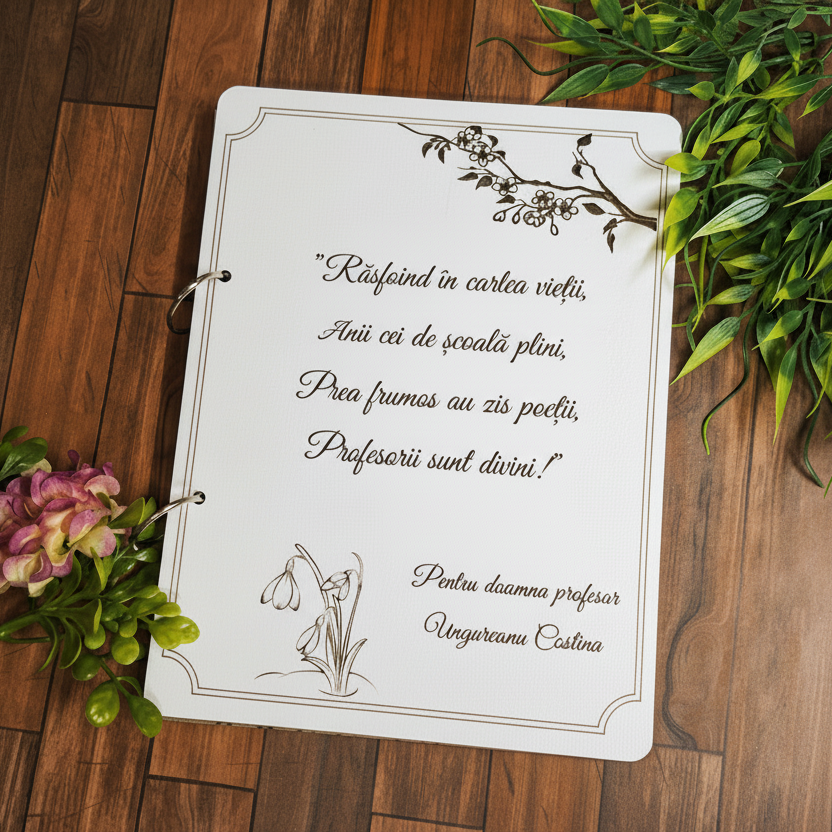 "Răsfoind în cartea vieții,
Anii cei de școală plini,
Prea frumos au zis poeții,
Profesorii sunt divini!"
Pentru doamna profesor
Ungureanu Costina